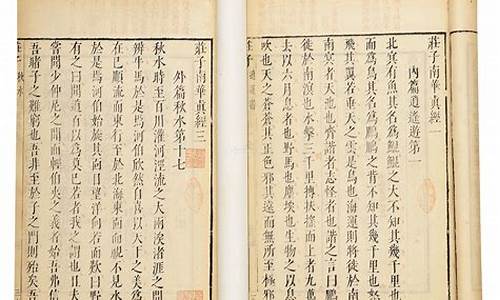 莊子南華真經一
內篇逍遙遊第一
北冥有魚其名爲鯤鯤之大不知其幾千里也
而爲鳥其名爲鵬鵬之背不知其幾千里也
其翼若垂天之雲是鳥也海運則將徙於
南冥者天池也齊諧者志怪者也諧之言曰
徙於南溟也水擊三千里摶扶搖而上者九萬
去以六月息者也野馬也塵埃也生物之以
吹也天之蒼蒼其正色邪其遠而
莊子 逍遙遊
莊子南華真經三
外篇秋水第十七
秋水時至百川灌河涇流之大兩涘渚涯之間
辨牛馬於是焉河伯欣然自喜以天下之美
在已順流而東行至於北海東面而視不見水
於是焉河伯始旋其面目望洋向若而歎曰
有之曰聞道百以爲莫已若者我之謂也且夫
嘗聞少仲尼之聞而輕伯夷之義者始吾弗信
吾睹子之難窮也吾非至於子之門則殆矣吾
莊子 秋水